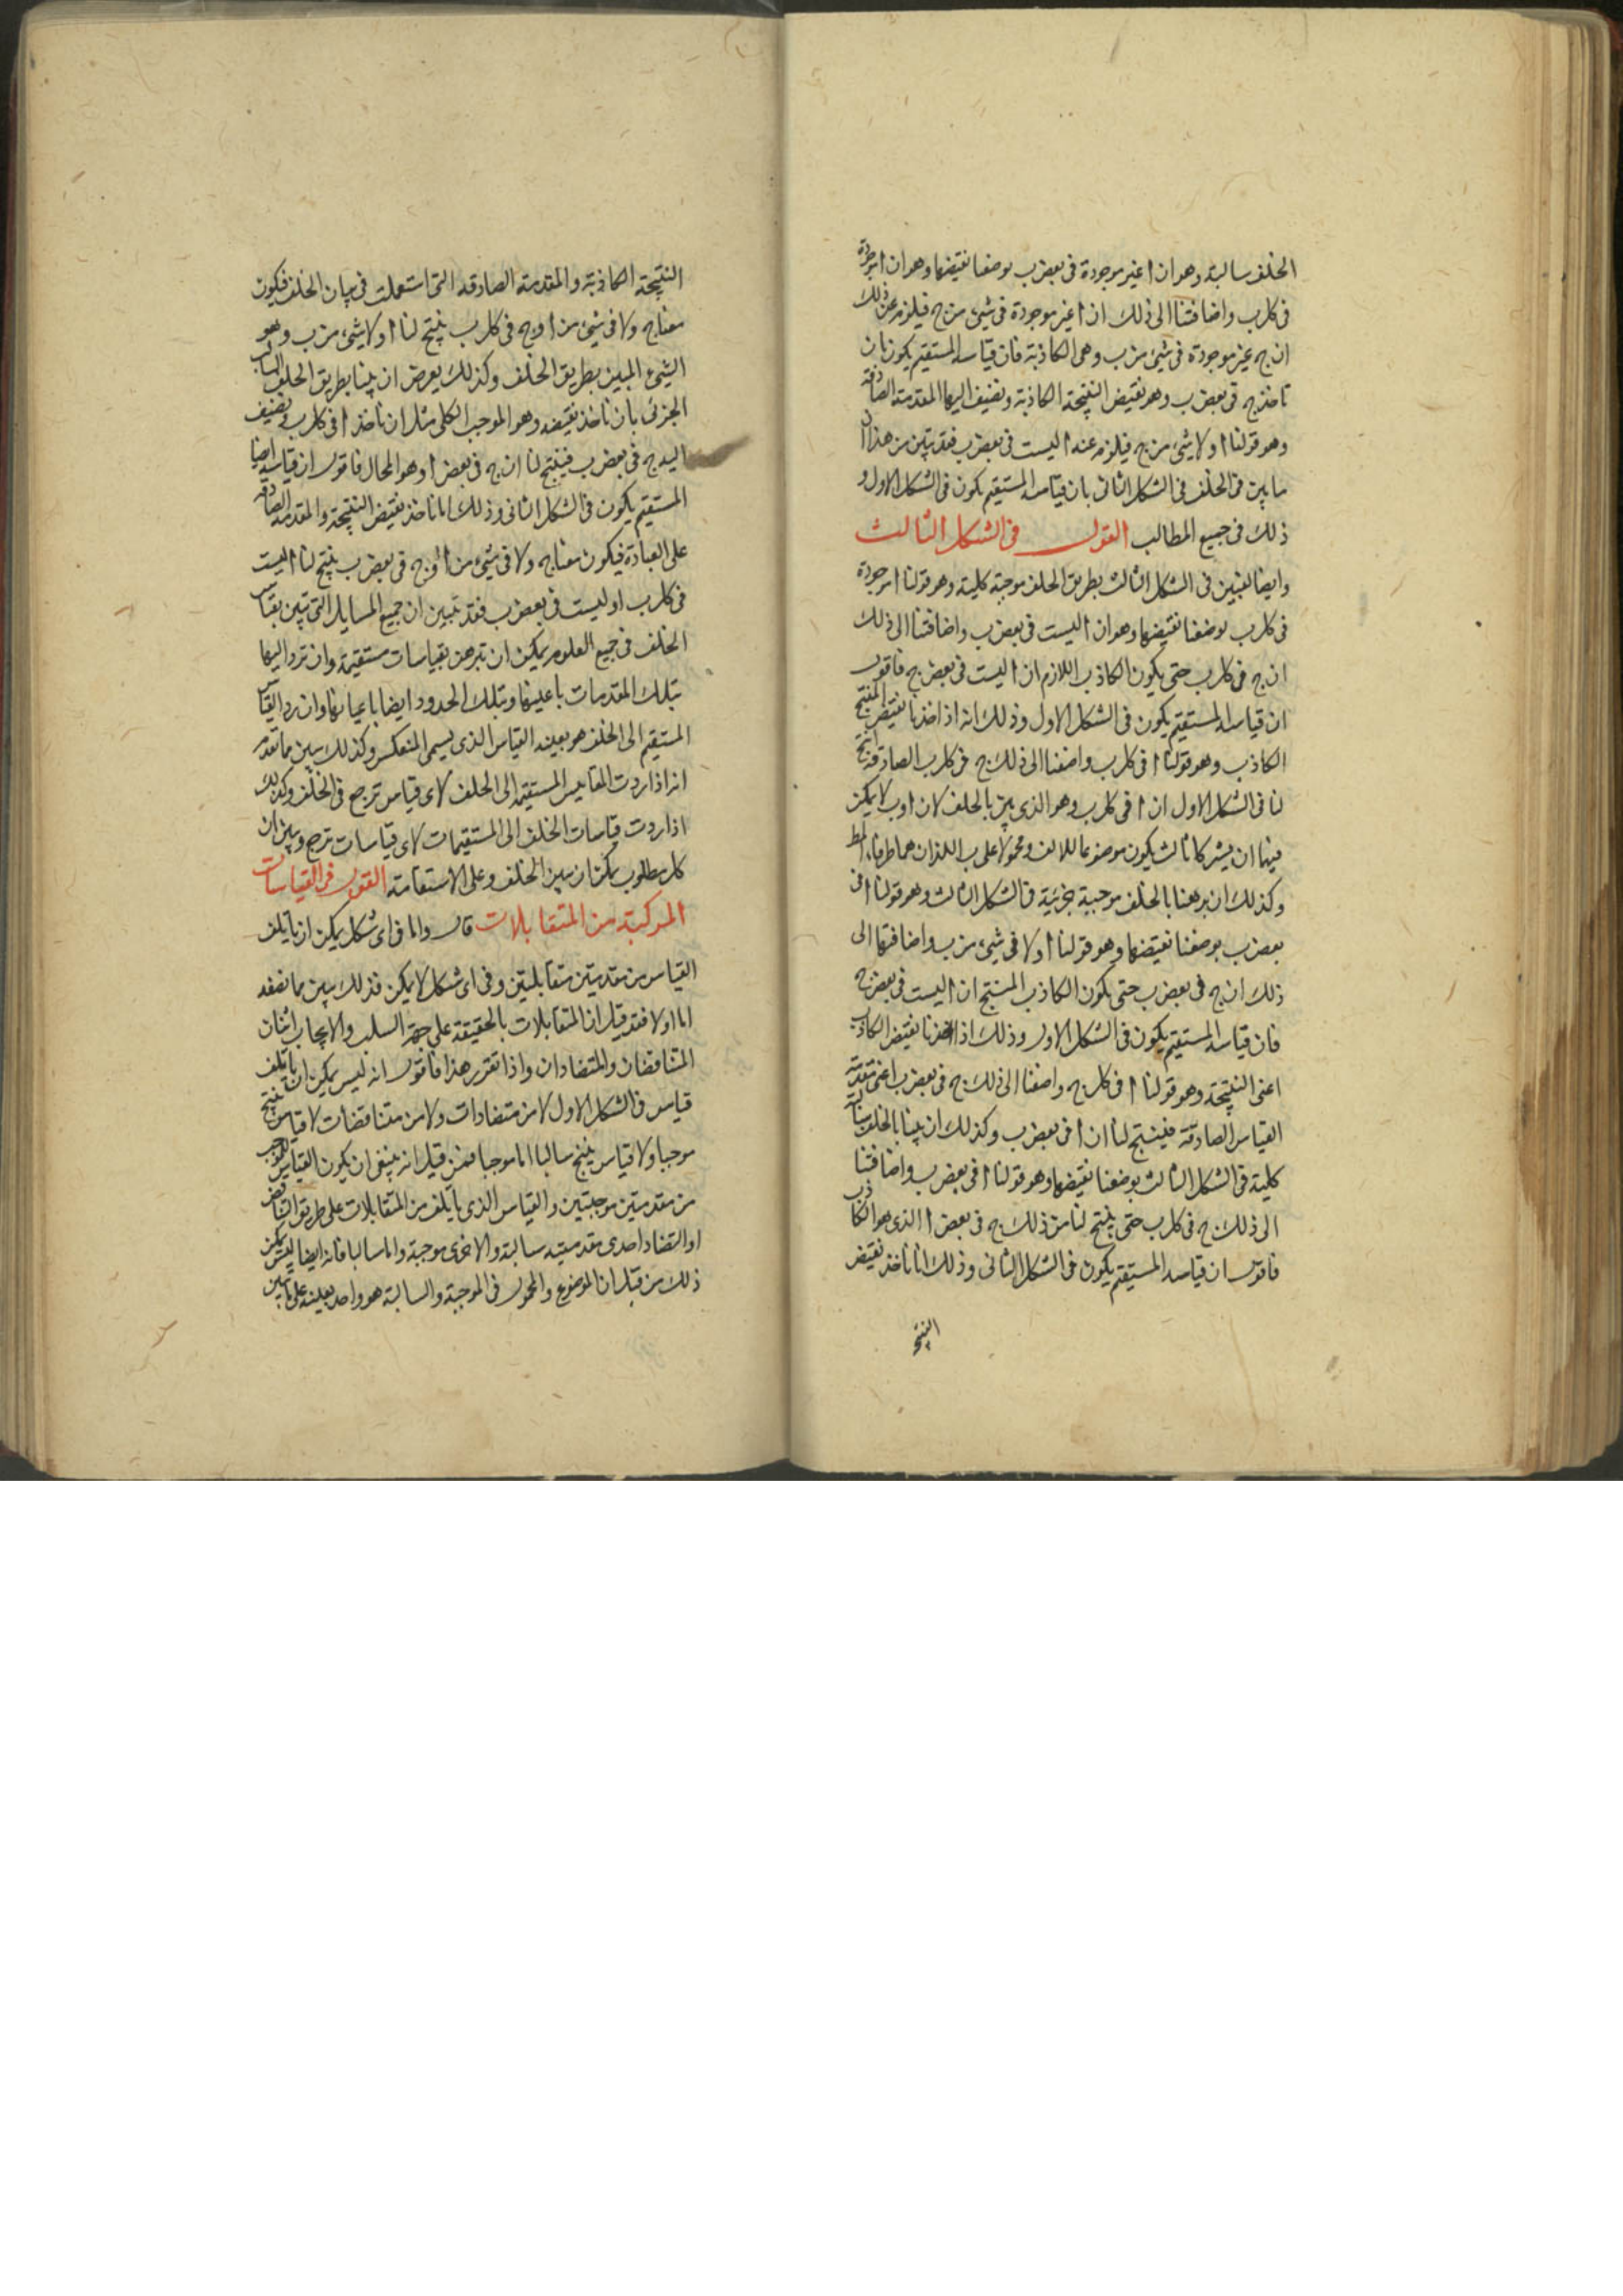 الخلف سالبة وهو ان ا غير موجودة فى بعض ب بوضعنا نقيضها وهو ان ا موجودة
فى كل ب واضافتنا الى ذلك ان ا غير موجودة فى شىء من ج فيلزم عن ذلك
ان ج غير موجودة فى شىء من ب وهى الكاذبة فان قياسه المستقيم يكون بان
ناخذ ج فى بعض ب وهو نقيض النتيجة الكاذبة ونضيف اليها المقدمة الصادقة
وهو قولنا ا ولا شىء من ج فيلزم عنه ا ليست فى بعض ب فقد تبين من هذا ان
ما يبين فى الخلف فى الشكل الثانى بان قياسه المستقيم يكون فى الشكل الاول و
ذلك فى جميع المطالب القول فى الشكل الثالث
وايضا لنبين فى الشكل الثالث بطريق الخلف موجبة كلية وهو قولنا ا موجودة
فى كل ب بوضعنا نقيضها وهو ان ا ليست فى بعض ب واضافتنا الى ذلك
ان ج فى كل ب حتى يكون الكاذب اللازم ان ا ليست فى بعض ج فاقول
ان قياسه المستقيم يكون فى الشكل الاول وذلك انه اذا اخذنا نقيض المنتج
الكاذب وهو قولنا ا فى كل ب واضفنا الى ذلك ج فى كل ب الصادقة انتج
لنا فى الشكل الاول ان ا فى كل ب وهو الذى يبين بالخلف لان ا وب لا يمكن
فيها ان يشركا ثالث يكون موضوعا للالف ومحمولا على ب اللذان هما طرفا المط
وكذلك ان برهنا بالخلف موجبة جزئية فى الشكل الثالث وهو قولنا ا فى
بعض ب بوضعنا نقيضها وهو قولنا ا ولا فى شىء من ب واضافتها الى
ذلك ان ج فى بعض ب حتى يكون الكاذب المنتج ان ا ليست فى بعض ج
فان قياسه المستقيم يكون فى الشكل الاول وذلك اذا اخذنا نقيض الكاذب
اعنى النتيجة وهو قولنا ا فى كل ج واضفنا الى ذلك ج فى بعض ب اعنى مقدمة
القياس الصادقة فينتج لنا ان ا فى بعض ب وكذلك ان بينا بالخلف سالبة
كلية فى الشكل الثالث بوضعنا نقيضها وهو قولنا ا فى بعض ب واضافتنا
الى ذلك ج فى كل ب حتى ينتج لنا من ذلك ج فى بعض ا الذى هو الكاذب
فاقول ان قياسه المستقيم يكون فى الشكل الثانى وذلك انا ناخذ نقيض
النتيجة
النتيجة الكاذبة والمقدمة الصادقة التى استعملت فى بيان الخلف فيكون
معنا ج ولا فى شىء من ا وج فى كل ب ينتج لنا ا ولا شىء من ب وهو
الشىء المبين بطريق الخلف وكذلك يعرض ان بينا بطريق الخلف السالب
الجزئى بان ناخذ نقيضه وهو الموجب الكلى مثل ان ناخذ ا فى كل ب ونضيف
اليه ج فى بعض ب فينتج لنا ان ج فى بعض ا وهو المحال فاقول ان قياسه ايضا
المستقيم يكون فى الشكل الثانى وذلك انا ناخذ نقيض النتيجة والمقدمة الصادقة
على العادة فيكون معنا ج ولا فى شىء من ا وج فى بعض ب ينتج لنا ا ليست
فى كل ب او ليست فى بعض ب فقد تبين ان جميع المسايل التى تبين بقياس
الخلف فى جميع العلوم يمكن ان تبرهن بقياسات مستقيمة وان ترد اليها
بتلك المقدمات باعينها وبتلك الحدود ايضا باعيانها وان رد القياس
المستقيم الى الخلف هو بعينه القياس الذى يسمى المنعكس وكذلك يبين مما تقدم
انه اذا ردت المقاييس المستقيمة الى الخلف لاى قياس ترجع فى الخلف وكذلك
اذا ردت قياسات الخلف الى المستقيمات لاى قياسات ترجع وتبين ان
كل مطلوب يمكن ان يبين بالخلف وعلى الاستقامة القول فى القياسات
المركبة من المتقابلات قال واما فى اى شكل يمكن ان ياتلف
القياس من مقدمتين متقابلتين وفى اى شكل لا يمكن فذلك يبين مما نصفه
اما اولا فقد قيل ان المتقابلات بالحقيقة على جهة السلب والايجاب اثنان
المتناقضان والمتضادان واذا تقرر هذا فاقول انه ليس يمكن ان ياتلف
قياس فى الشكل الاول لا من متضادات ولا من متناقضات لا قياس ينتج
موجبا ولا قياس ينتج سالبا اما موجبا فمن قبل انه ينبغى ان يكون القياس الموجب
من مقدمتين موجبتين والقياس الذى ياتلف من المتقابلات على طريق التناقض
او التضاد احدى مقدمتيه سالبة والاخرى موجبة واما سالبا فانه ايضا ليس يمكن
ذلك من قبل ان الموضوع والمحمول فى الموجبة والسالبة هو واحد بعينه على ما تبين